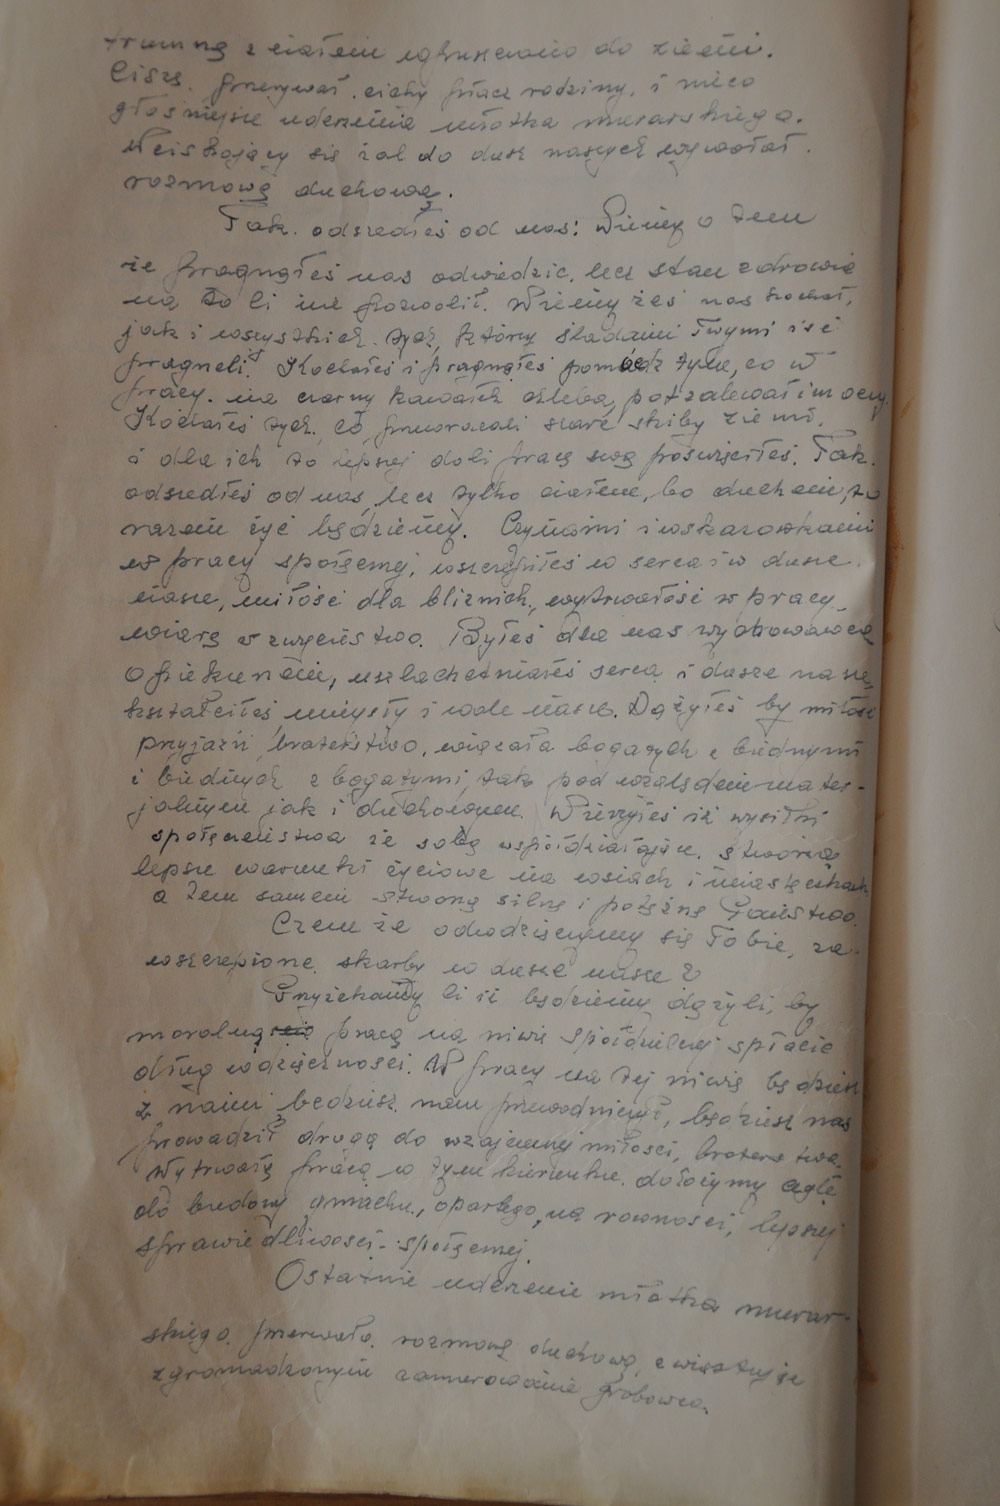 trumnę z ciałem wpuszczono do ziemi.
Ciszę. przerywał. cichy płacz rodziny. i nieco
głośniejsze uderzenie młotka murarskiego.
Wciskający się żal do dusz naszych wywołał.
rozmowę duchową.
Tak. odszedłeś od nas: Wiemy o tem
że pragnąłeś nas odwiedzić, lecz stan zdrowia
na to Ci nie pozwolił. Wiemy żeś nas kochał,
jak i wszystkich. tych, którzy śladami Twymi iść
pragneli. Kochałeś i pragnąłeś pomódz tym, co w
pracy. na czarny kawałek chleba, pot zalewał im oczy.
Kochałeś tych. co, przewracali szare skiby ziemi,
i dla ich to lepszej doli pracę swą poświęciłeś. Tak.
odszedłeś od nas lecz tylko ciałem, bo duchem, to
razem żyć będziemy. Czynami i wskazówkami
w pracy społecznej, wszczepiłeś w serca i w dusze.
nasze, miłość dla bliźnich, wytrwałość w pracy
wiarę w zwycięstwo. Byłeś dla nas wychowawcą
opiekunem, uszlachetniałeś serca i dusze nasze,
kształciłeś umysły i wole nasze. Dążyłeś by miłość
przyjaźń braterstwo, wiązała bogatych z biednymi
i biednych z bogatymi, tak pod względem mater-
jalnym jak i duchowym. Wierzyłeś iż wysiłki
społeczeństwa ze sobą współdziałające. stworzą
lepsze warunki życiowe na wsiach i miasteczkach
a tem samem stworzą silne i potężne Państwo.
Czem że odwdzięczymy się Tobie, za
wszczepione. skarby w dusze nasze?
Przyrzekamy Ci iż będziemy dążyli, by
moralną pracą na niwie spółdzielczej spłacić
dług wdzięczności. W pracy na tej niwie będziesz
z nami będziesz nam przewodniczył, będziesz nas
prowadził drogą do wzajemnej miłości, braterstwa.
Wytrwałą pracą w tym kierunku. dołożymy cegłę
do budowy gmachu, opartego na równości, lepszej
sprawiedliwości - społecznej.
Ostatnie uderzenie młotka murar-
skiego. przerwało. rozmowę duchową,
zgromadzonym zamurowanie grobowca.